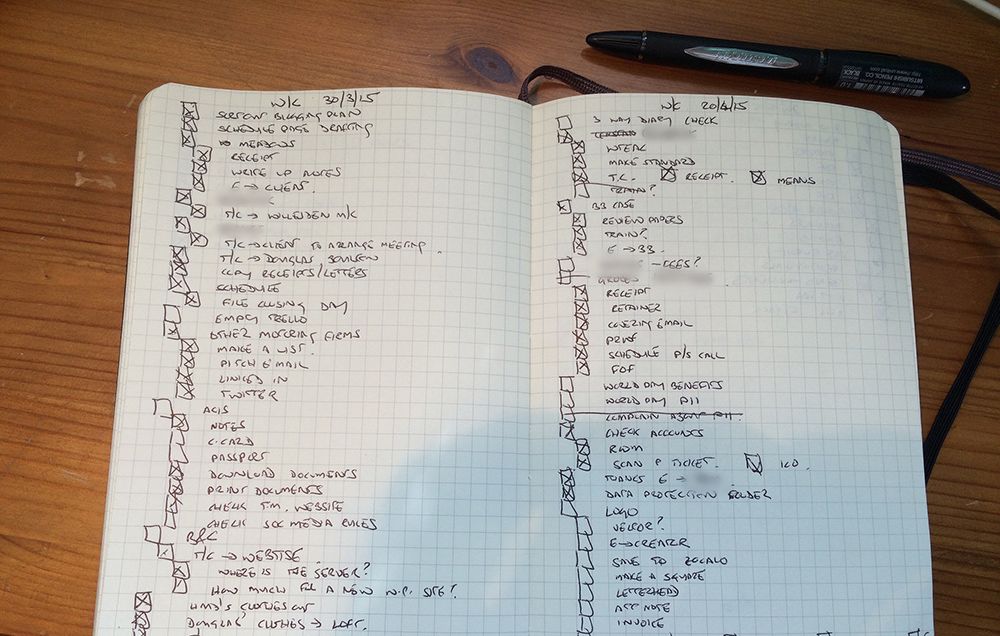 W/C 30/3/15
BLOGGING PLAN
SCHEDULE PAGE DRAFTING
MEADOWS
RECEIPT
WRITE UP NOTES
E → CLIENT.
T/C → WILLESDEN M/C
T/C → CLIENT TO ARRANGE MEETING.
T/C → DOUGLAS,
COPY RECEIPTS/LETTERS
SCHEDULE
FILE CLOSING DAY
EMPTY TRELLO
OTHER MOTORING FIRMS
MAKE A LIST.
PITCH EMAIL
LINKED IN
TWITTER
ACIS
NOTES
C.CARD
PASSPORT
DOWNLOAD DOCUMENTS
PRINT DOCUMENTS
CHECK T.M. WEBSITE
CHECK SOC MEDIA RULES
T/C → WEBTISE
WHERE IS THE SERVER?
HOW MUCH FOR A NEW W.P. SITE?
CLOTHES OUT
DOUGLAS' CLOTHES → LOFT.
W/C 20/4/15
3 WAY DIARY CHECK
MAKE STANDARD
T.C. RECEIPT. MEANS
TRAIN?
BB CASE
REVIEW PAPERS
TRAIN?
E → BB.
- FEES?
RECEIPT
RETAINER
COVERING EMAIL
PRINT
SCHEDULE P/S CALL
FOF
WORLD DAY BENEFITS
WORLD DAY PII
COMPLAIN ABOUT PII
CHECK ACCOUNTS
SCAN P TICKET. ICO
THANKS E →
DATA PROTECTION FOLDER
LOGO
VECTOR?
E → CREATER
SAVE TO ZOCALO
MAKE A SQUARE
LETTERHEAD
ATT NOTE
INVOICE
MITSUBISHI PENCIL CO.
BLACK